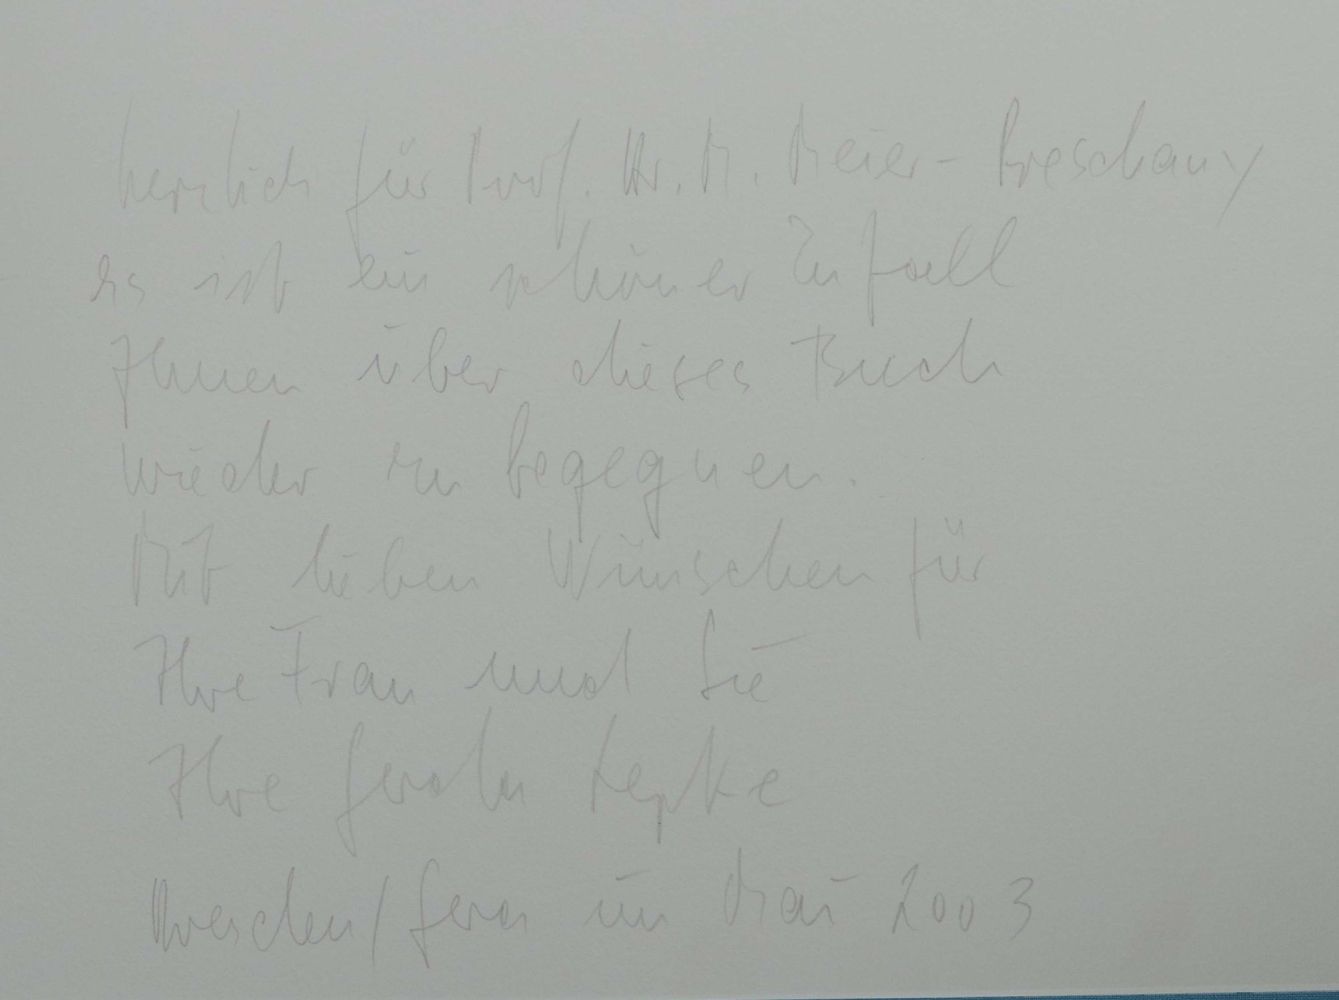 herzlich für Prof. Dr. M. Meier-Preschany
es ist ein schöner Zufall
Ihnen über dieses Buch
wieder zu begegnen.
Mit lieben Wünschen für
Ihre Frau und Sie
Ihre Gerda Lepke
Dresden/Gera im Mai 2003